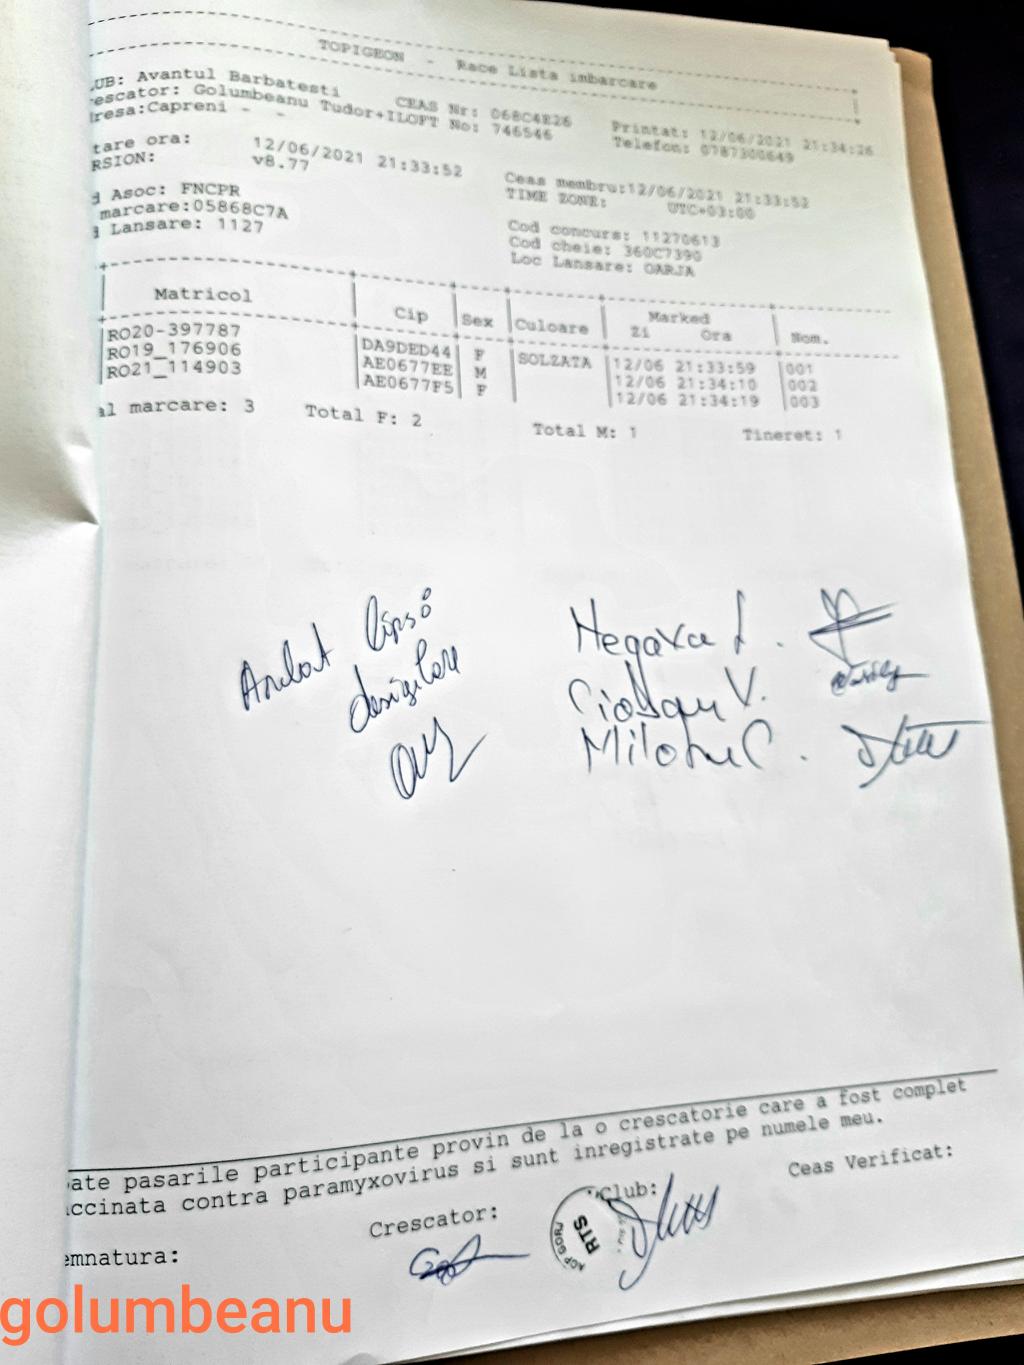 TOPIGEON - Race Lista imbarcare
UB: Avantul Barbatesti CEAS Nr: 068C4E26 Printat: 12/06/2021 21:34:26
escator: Golumbeanu Tudor+ILOFT No: 746546 Telefon: 0787300649
resa:Capreni - -
tare ora: 12/06/2021 21:33:52 Ceas membru:12/06/2021 21:33:52
RSION: v8.77 TIME ZONE: UTC+03:00
d Asoc: FNCPR Cod concurs: 11270613
marcare:05868C7A Cod cheie: 360C7390
d Lansare: 1127 Loc Lansare: OARJA
Matricol Cip Sex Culoare Marked Nom.
Zi Ora
RO20-397787 DA9DED44 F SOLZATA 12/06 21:33:59 001
RO19_176906 AE0677EE M 12/06 21:34:10 002
RO21_114903 AE0677F5 F 12/06 21:34:19 003
al marcare: 3 Total F: 2 Total M: 1 Tineret: 1
lipsă
Milotin C.
ate pasarile participante provin de la o crescatorie care a fost complet
ccinata contra paramyxovirus si sunt inregistrate pe numele meu.
emnatura: Crescator: Club: Ceas Verificat:
ACP GORJ
RTS
golumbeanu